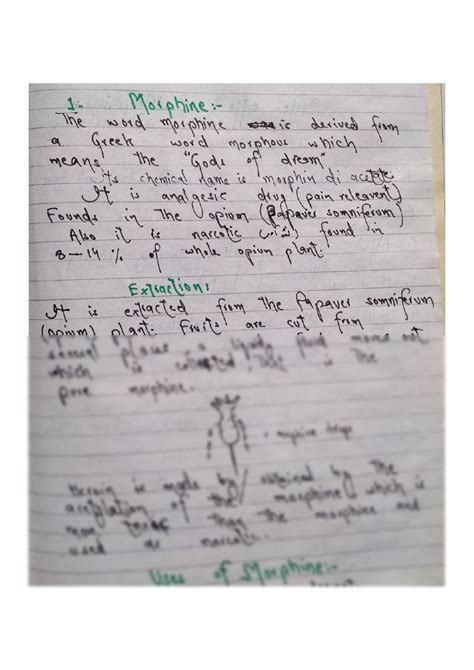 1:- Morphine:-
The word morphine is derived from
a Greek word morphous which
means the "Gods of dream"
Its chemical name is morphin di acetate
It is analgesic drug (pain releavent)
Founds in The opium (Papaver somniferom)
Also it is narcotic found in
8-14 % of whole opium plant.
Extraction:
It is extracted from the Papaver somniferum
(opium) plant. Fruits are cut from
places a fluid moves out
which is This is The
pure morphine.
Heroin is made by / obtained by The
acetylation of the morphine which is
more than the morphine and
used as narcotic.
Uses of Morphine:-